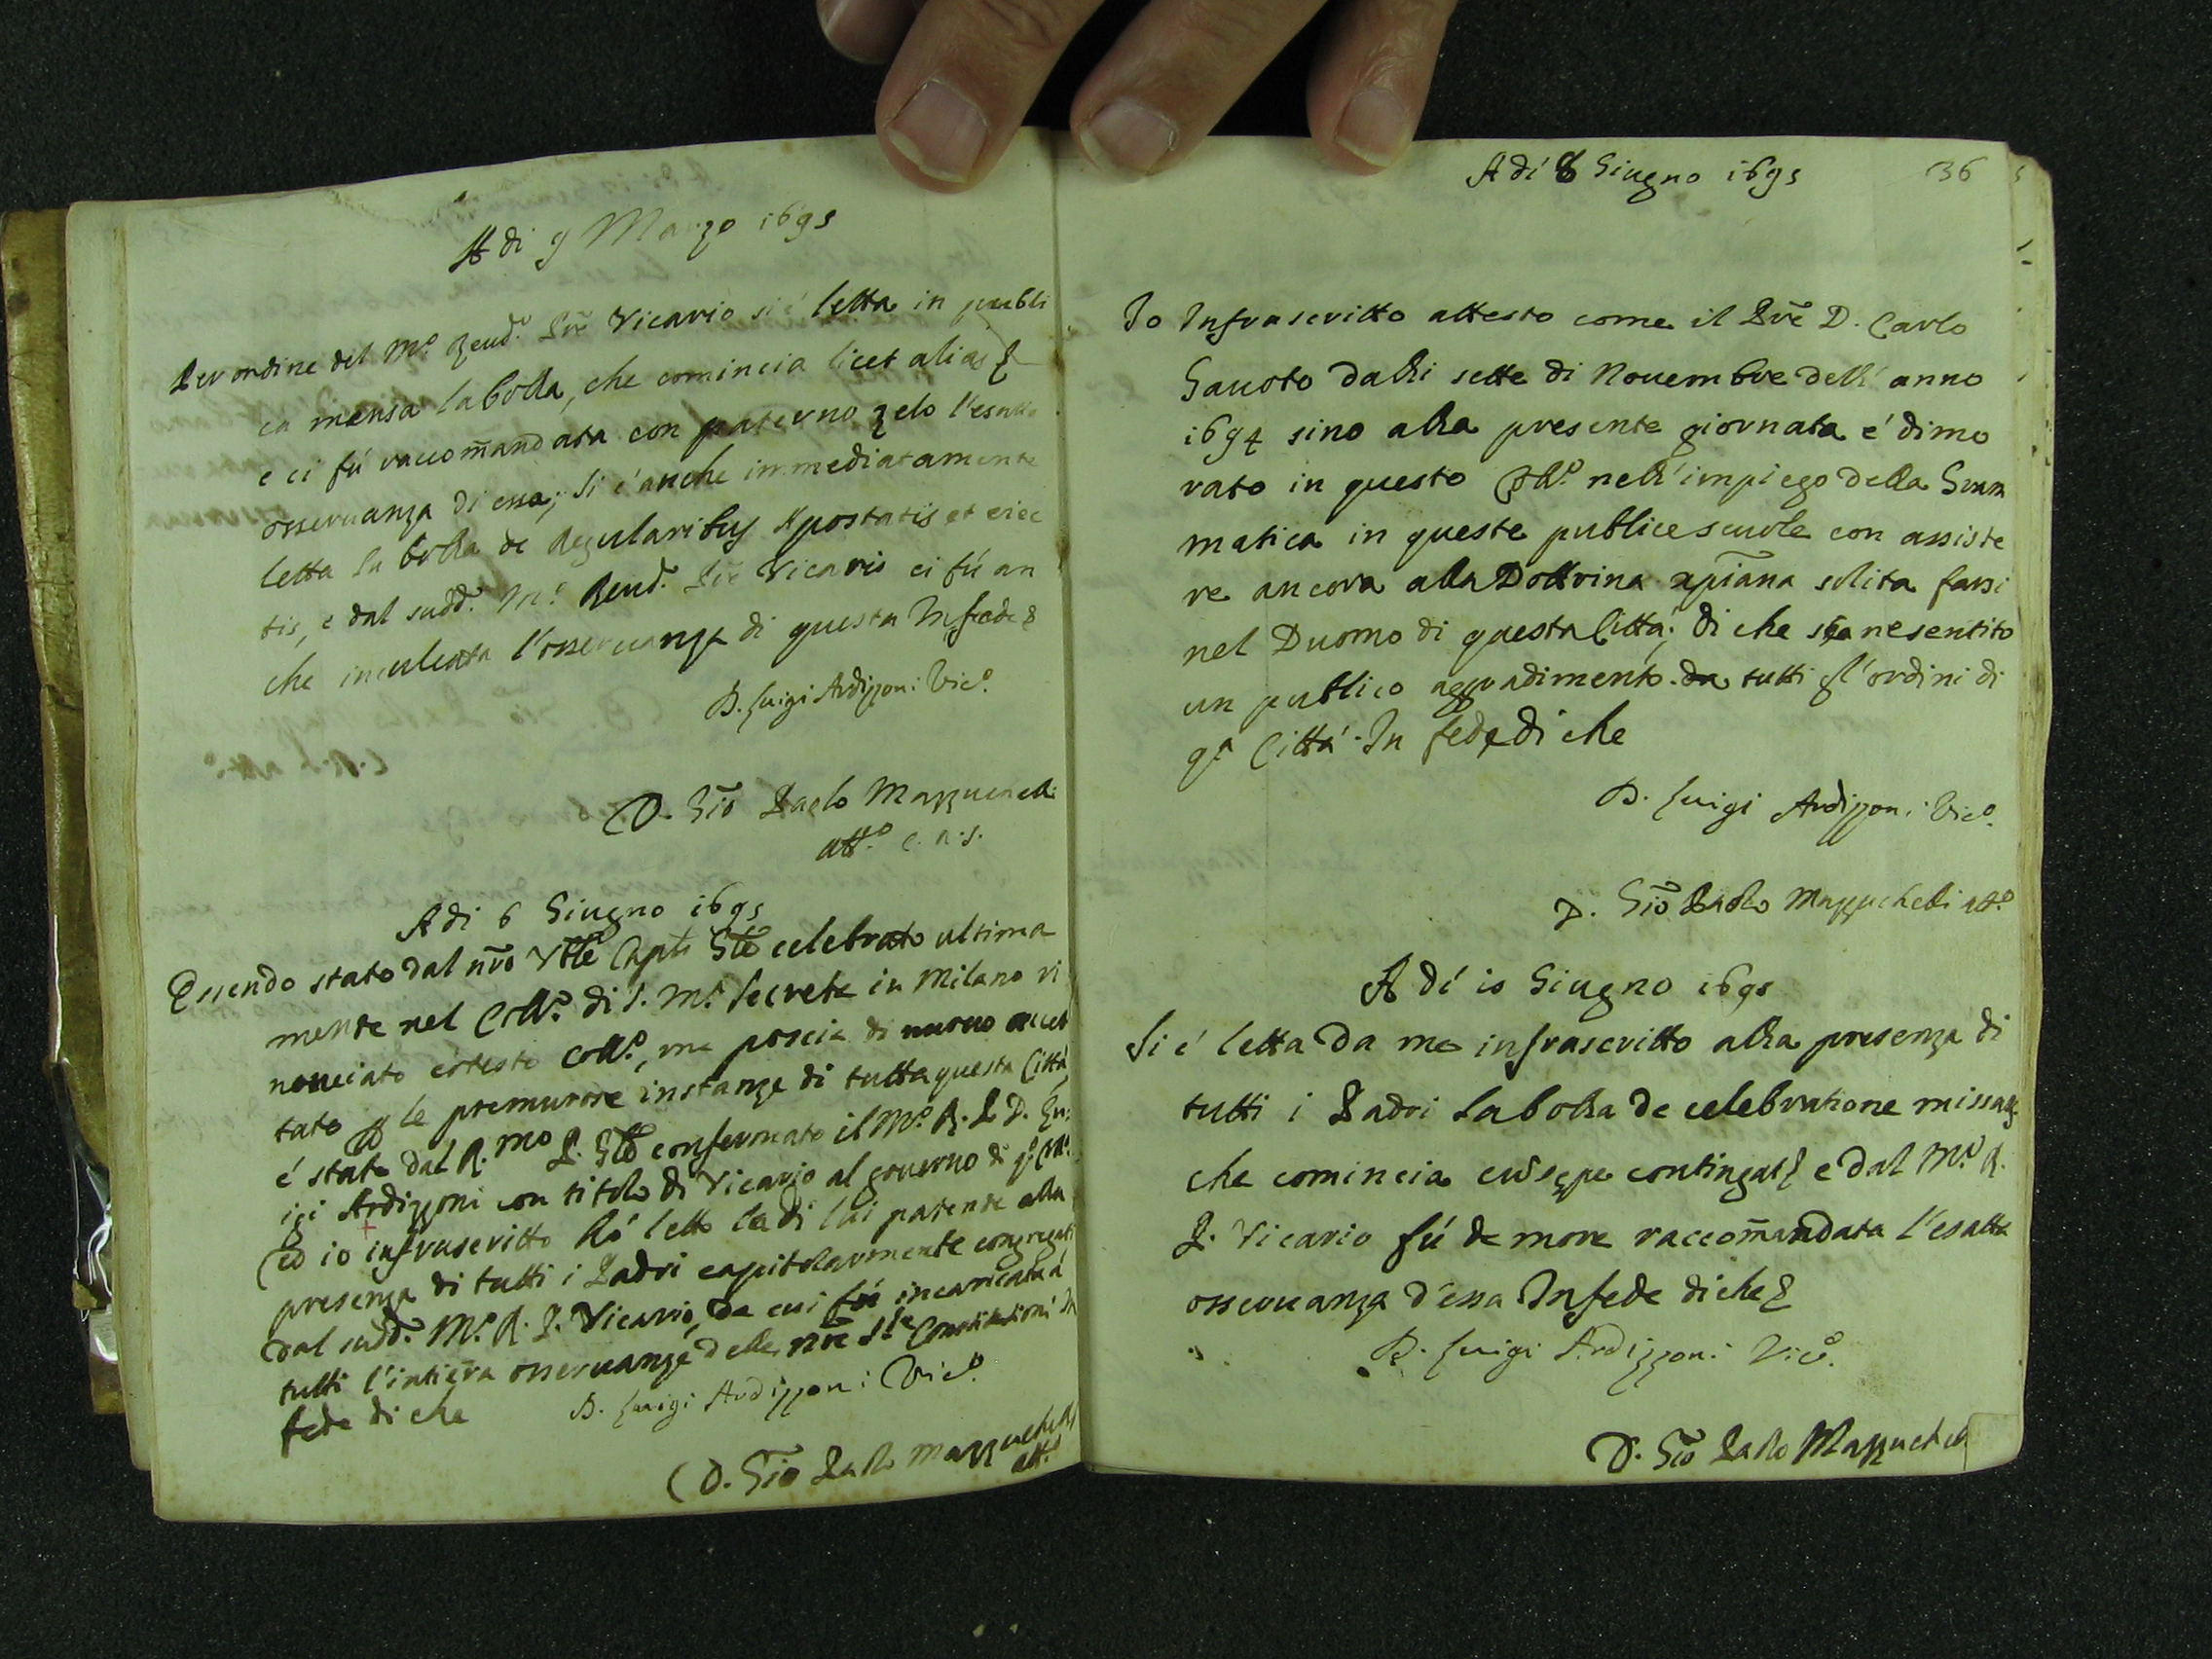 A di 9 Marzo 1695
Per ordine del M.º Reud.º Pre Vicario si é letta in publi
ca mensa la bolla, che comincia licet alias &
e ci fú raccom̃andata con paterno zelo l'esatta
osseruanza di essa; Si é anche immediatamente
letta la bolla de Regularibus Apostatis et eiec
tis, e dal sudd.º M.º Reud.º Pre Vicario ci fú an
che inculcata l'osseruanza di questa In fede &
D. Luigi Ardizzoni Vic.º
D. Gio Paolo Mazzuchelli
att.º C.R.S.
A di 6 Giugno 1695
Essendo stato dal nr̃o Vble Capto Gle celebrato ultima
mente nel Coll.º di S. M.ª Secreta in Milano ri
nonciato cotesto Coll.º, ma poscia di nuouo accet
tato p le premurose instanze di tutta questa Cittá
é stato dal R.mo P. Gle confermato il M.º R. P. D. Lu:
igi Ardizzoni con titolo di Vicario al gouerno di q.º Coll.º
ed io infrascritto hó letto la di lui patente alla
presenza di tutti i Padri capitolarmente congregati
dal sudd.º M.º R. P. Vicario, da cui fú incaricata á
tutti l'intiera osseruanza delle nr̃e S.te Constitutioni In
fede di che
D. Luigi Ardizzoni Vic.º
D. Gio Paolo Mazzuchelli
att.º
36
A dí 8 Giugno 1695
Io Infrascritto attesto come il Pre D. Carlo
Gauoto dalli sette di Nouembre dell' anno
1694 sino alla presente giornata é dimo
rato in questo Coll.º nell' impiego della Gram
matica in queste publice scuole con assiste
re ancora alla Dottrina xpĩana solita farsi
nel Duomo di questa Cittá; di che se ne sentito
un publico aggradimento da tutti gl'ordini di
q.ª Cittá. In fede di che
D. Luigi Ardizzoni Vic.º
D. Gio Paolo Mazzuchelli att.º
A dí 10 Giugno 1695
Si é letta da me infrascritto alla presenza di
tutti i Padri la bolla de celebratione missaru
che comincia cũ sępe contingat & e dal M.º R.
P. Vicario fú de more raccom̃andata l'esatta
osseruanza d'essa In fede di che &
D. Luigi Ardizzoni Vic.º
D. Gio Paolo Mazzuchelli